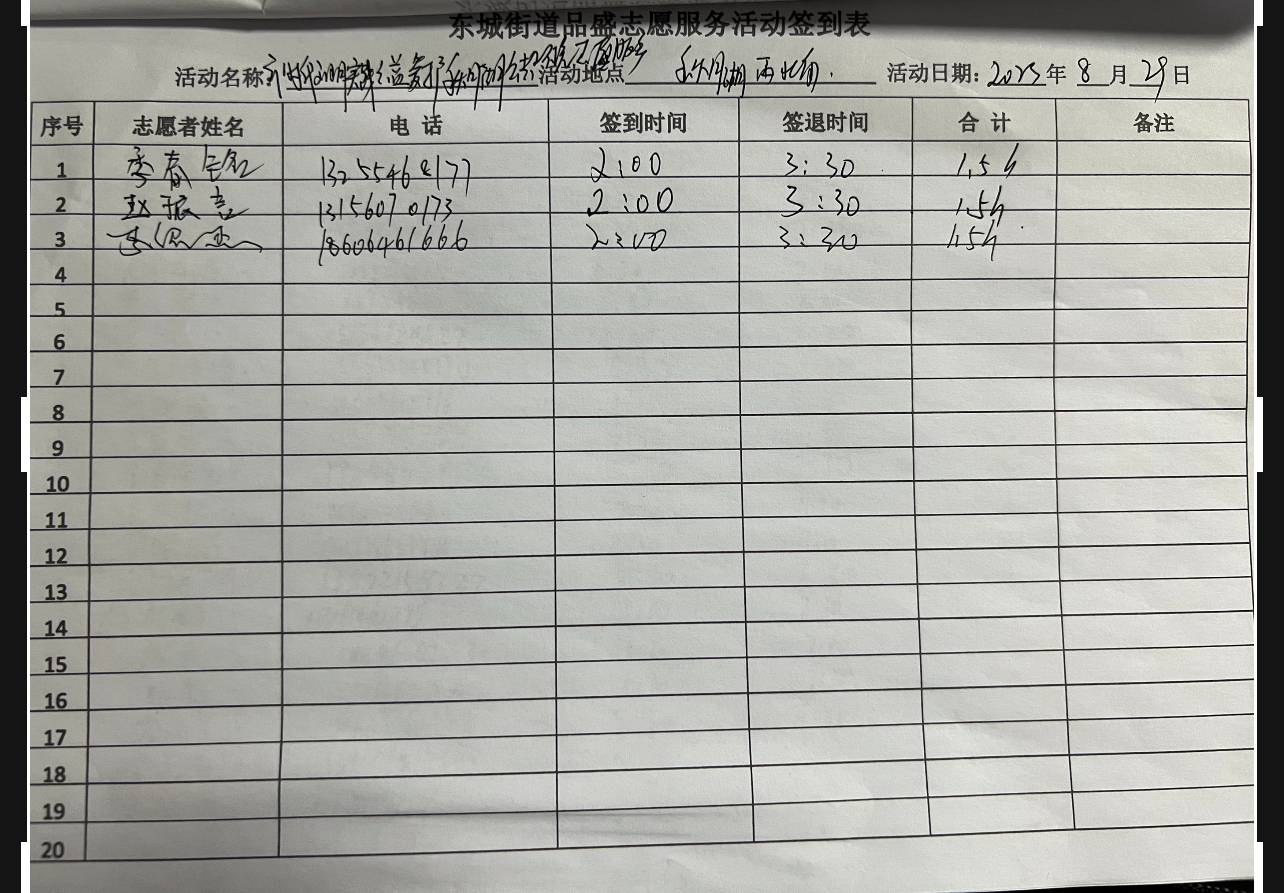 东城街道品盛志愿服务活动签到表
活动名称: 活动地点 月湖西北角. 活动日期: 2023年 8 月 29 日
序号 志愿者姓名 电 话 签到时间 签退时间 合 计 备注
1 李春 13255468177 2:00 3:30 1.5h
2 赵振吉 13156070173 2:00 3:30 1.5h
3 18606461666 2:00 3:30 1.5h
4
5
6
7
8
9
10
11
12
13
14
15
16
17
18
19
20